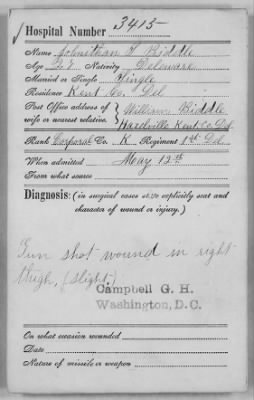 Hospital Number 3415
Name Johnithan T Biddle
Age 22 Nativity Delaware
Married or Single Single
Residence Kent Co. Del
Post Office address of
wife or nearest relative.
William Biddle
Hazelville Kent. Co. Del.
Rank Corporal Co. K Regiment 1st Del
When admitted May 12th
From what source
Diagnosis: (in surgical cases state explicitly seat and
character of wound or injury.)
Gun shot wound in right
thigh, (slight)
Campbell G. H.
Washington, D.C.
On what occasion wounded
Date
Nature of missile or weapon